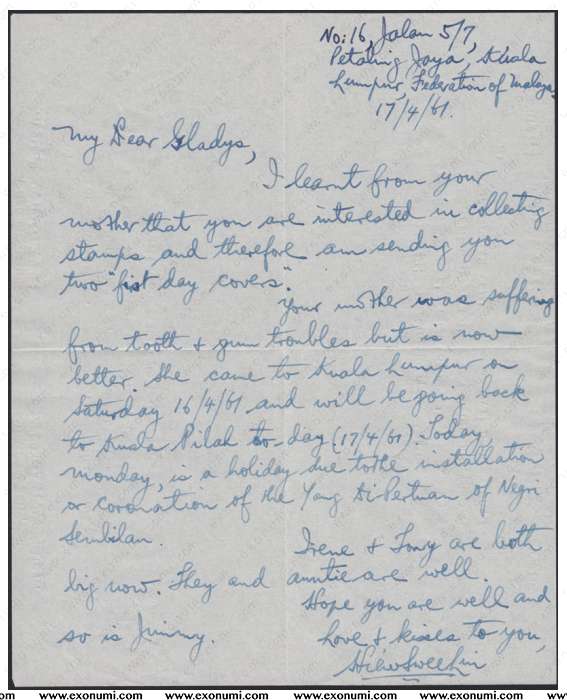 No: 16, Jalan 5/7,
Petaling Jaya, Kuala
Lumpur, Federation of Malaya.
17/4/61.
My Dear Gladys,
I learnt from your
mother that you are interested in collecting
stamps and therefore am sending you
two "first day covers".
Your mother was suffering
from tooth & gum troubles but is now
better. She came to Kuala Lumpur on
Saturday 16/4/61 and will be going back
to Kuala Pilah to-day (17/4/61). Today,
Monday, is a holiday due to the installation
or coronation of the Yang Di Pertuan of Negri
Sembilan.
Irene & Tony are both
big now. They and auntie are well.
Hope you are well and
so is Jimmy.
Love & kisses to you,
www.exonumi.com www.exonumi.com www.exonumi.com www.exonumi.com